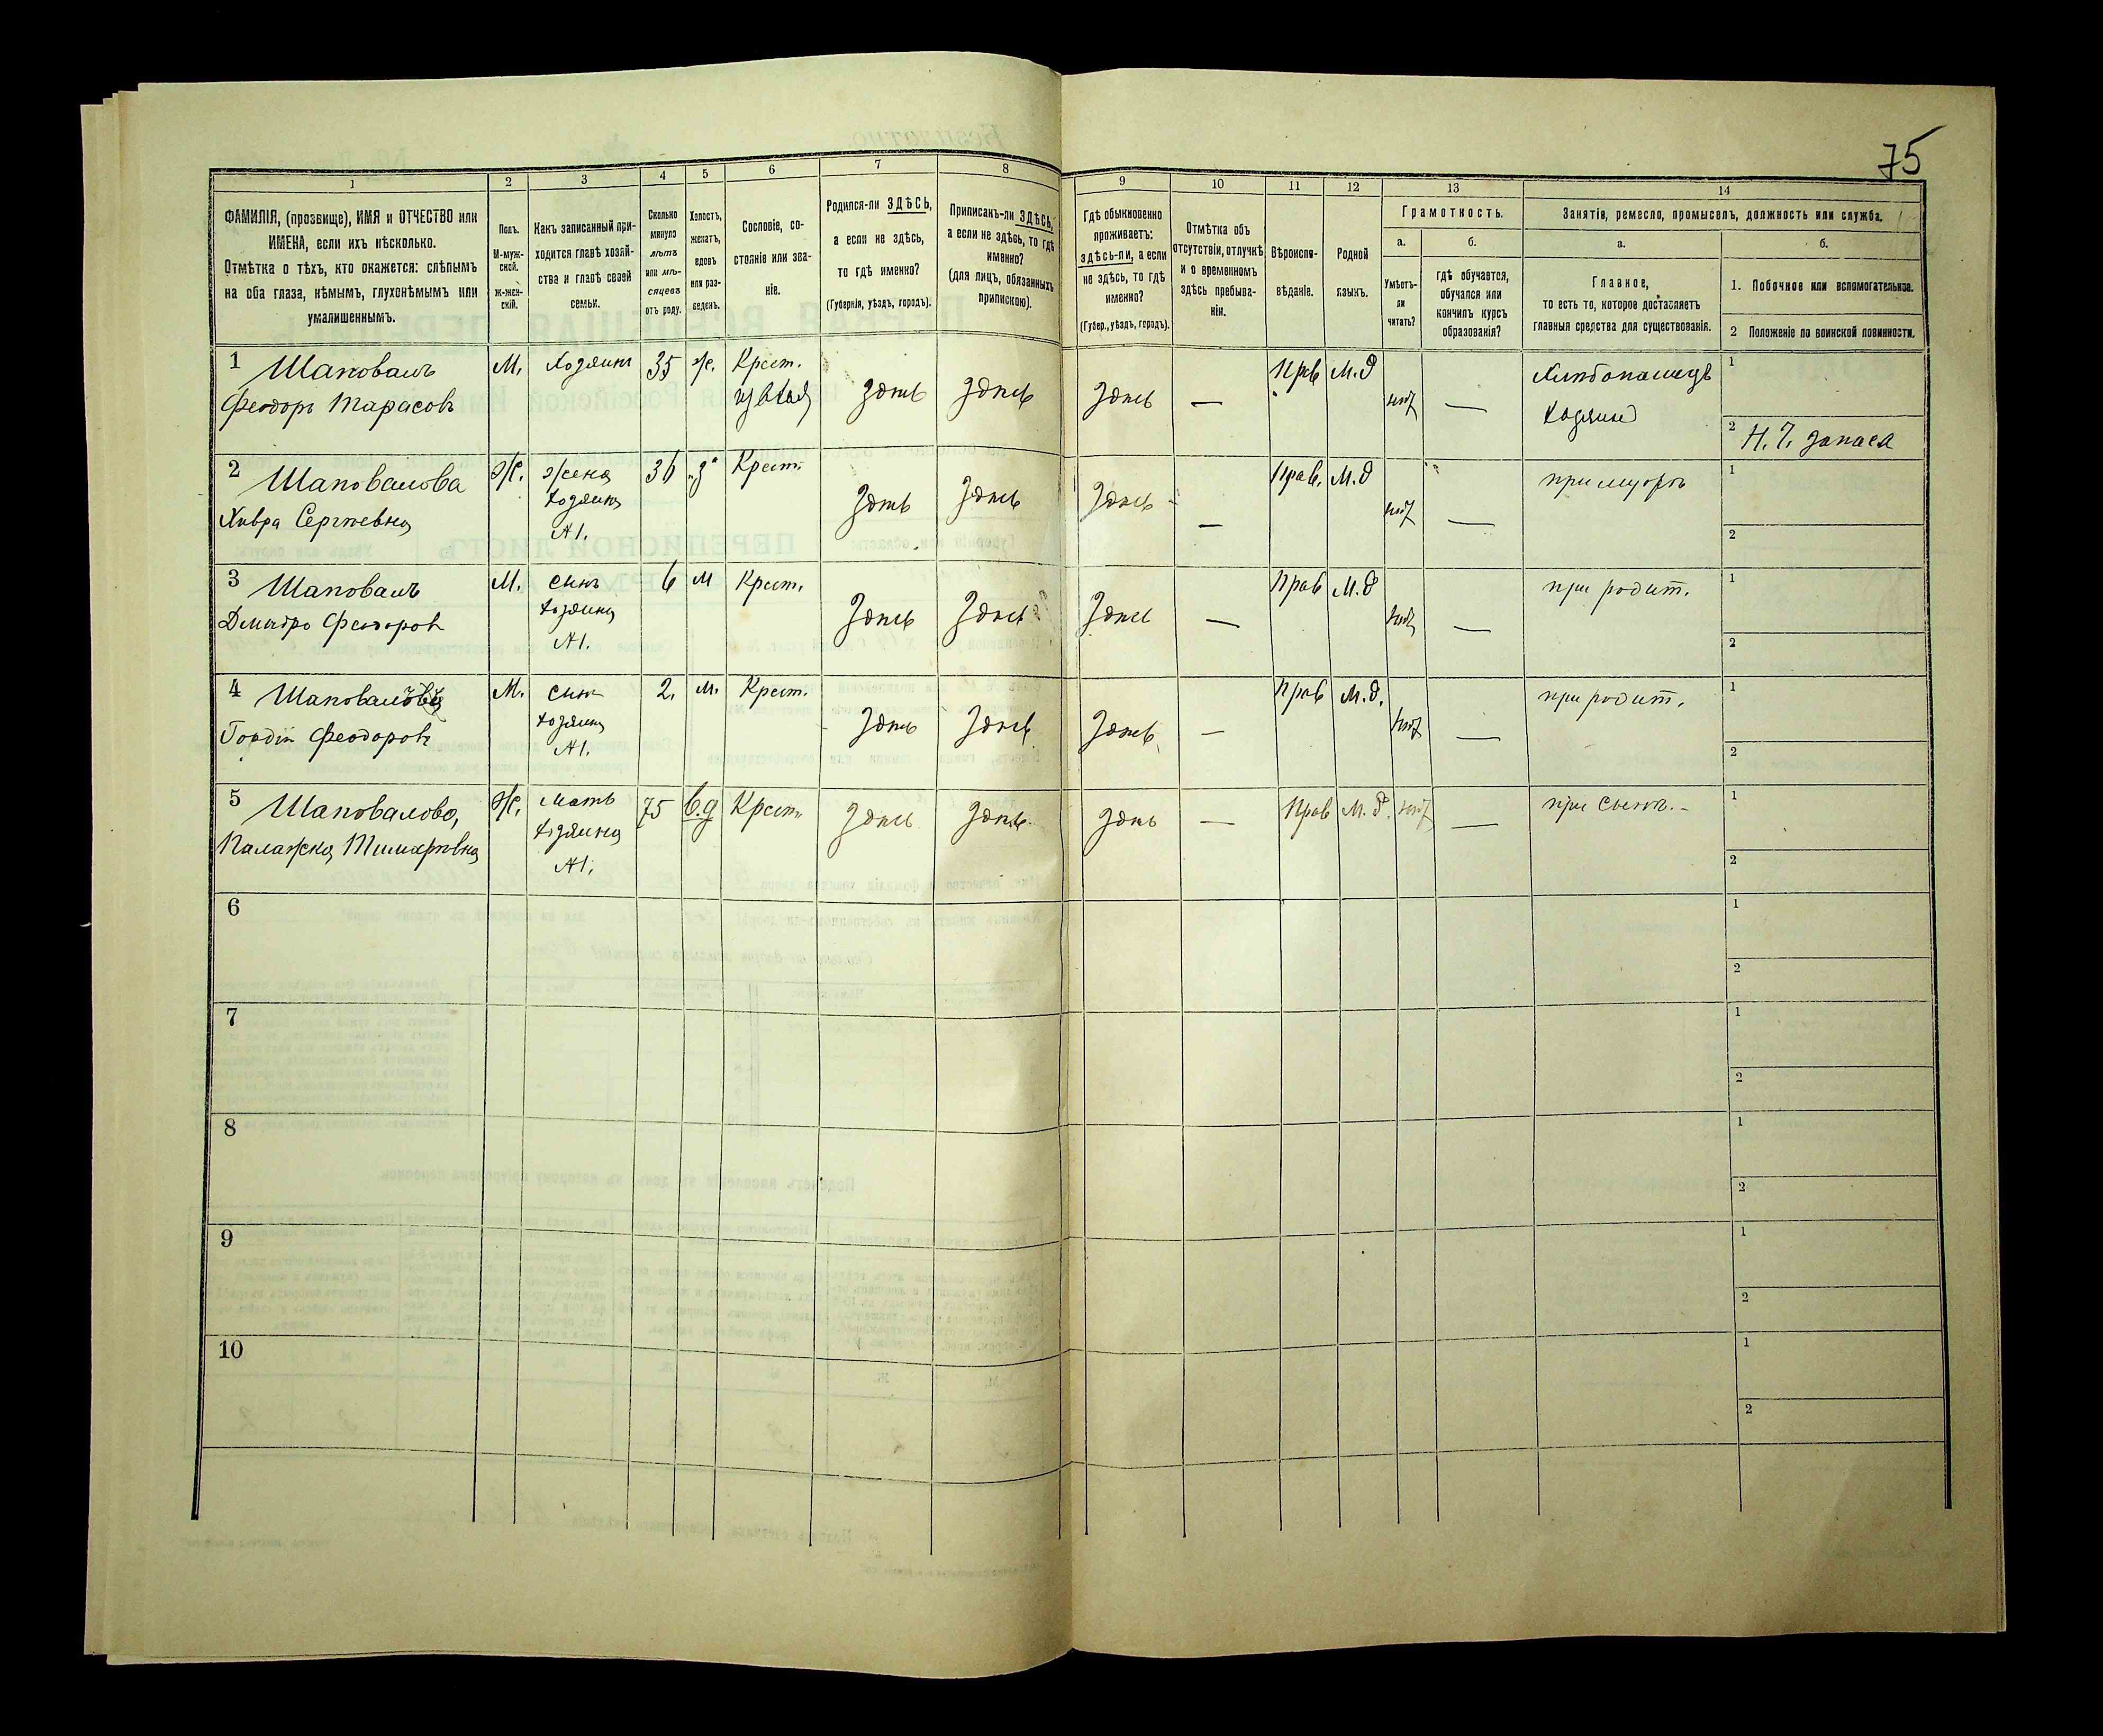 75
1
2
3
4
5
6
7
8
9
10
11
12
13
14
ФАМИЛІЯ, (прозвище), ИМЯ и ОТЧЕСТВО или
ИМЕНА, если ихъ нѣсколько.
Отмѣтка о тѣхъ, кто окажется: слѣпымъ
на оба глаза, нѣмымъ, глухонѣмымъ или
умалишеннымъ.
Полъ.
М-муж-
ской.
Ж-жен-
скій.
Какъ записанный при-
ходится главѣ хозяй-
ства и главѣ своей
семьи.
Сколько
минуло
лѣтъ
или мѣ-
сяцевъ
отъ роду.
Холостъ,
женатъ,
вдовъ
или раз-
веденъ.
Сословіе, со-
стояніе или зва-
ніе.
Родился-ли ЗДѢСЬ,
а если не здѣсь,
то гдѣ именно?
(Губернія, уѣздъ, городъ).
Приписанъ-ли ЗДѢСЬ,
а если не здѣсь, то гдѣ
именно?
(для лицъ, обязанныхъ
припискою).
Гдѣ обыкновенно
проживаетъ:
здѣсь-ли, а если
не здѣсь, то гдѣ
именно?
(Губер., уѣздъ, городъ).
Отмѣтка объ
отсутствіи, отлучкѣ
и о временномъ
здѣсь пребыва-
ніи.
Вѣроиспо-
вѣданіе.
Родной
языкъ.
Грамотность.
а.
Умѣетъ-
ли
читать?
б.
гдѣ обучается,
обучался или
кончилъ курсъ
образованія?
Занятіе, ремесло, промыселъ, должность или служба.
а.
Главное,
то есть то, которое доставляетъ
главныя средства для существованія.
б.
1. Побочное или вспомогательное.
2 Положеніе по воинской повинности.
1 Шаповалъ М. Хозяинъ 35 ж. Крест. Прв М.д Хлѣбопашецъ 1
Феодоръ Тарасовъ здѣсь здѣсь здѣсь — нѣт — Хозяинъ
2 Н. Ч. запаса
2 Шаповалова Ж. жена 36 з Крест. Прав. М.д при мужѣ 1
Хивра Сергѣевна хозяина здѣсь здѣсь здѣсь — нѣт —
№1. 2
3 Шаповалъ М. сынъ 6 М Крест. Прав М.д при родит. 1
Дмитро Феодоровъ хозяина здѣсь здѣсь здѣсь — нѣт —
№1. 2
4 М. сынъ 2. м. Крест. Прав М.д. при родит. 1
Гордій Феодоровъ хозяина здѣсь здѣсь здѣсь — нѣт —
№1. 2
5 Шаповалова, Ж. мать 75 вд Крест. здѣсь здѣсь здѣсь — Прав М.д. нѣт — при сынѣ. 1
Палажка хозяина
№1. 2
6 1
2
7 1
2
8 1
2
9 1
2
10 1
2